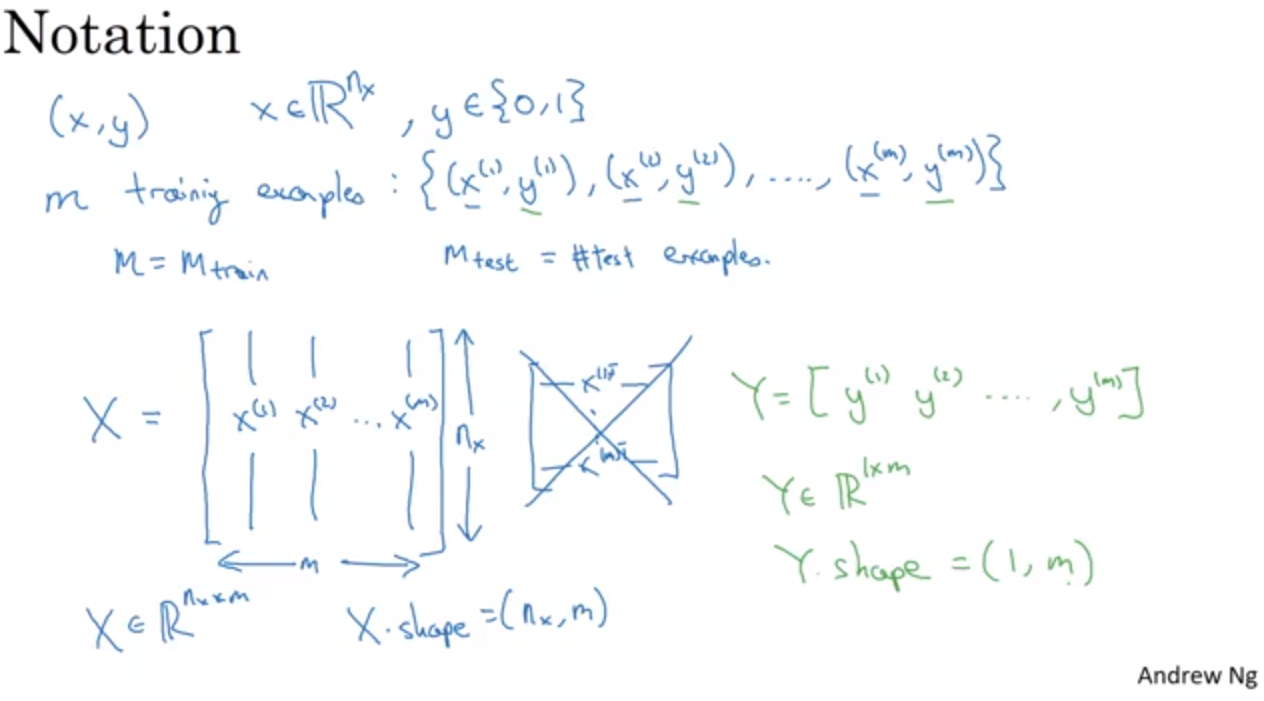 Notation
(x,y) x∈ℝ^{n_x}, y∈{0,1}
m training examples: {(x^{(1)}, y^{(1)}), (x^{(2)}, y^{(2)}), ...., (x^{(m)}, y^{(m)})}
M = M_{train} M_{test} = #test examples.
X = [x^{(1)} x^{(2)} ... x^{(m)}] n_x
m
x^{(1)T}
x^{(m)T}
Y = [y^{(1)} y^{(2)} ...., y^{(m)}]
Y∈ℝ^{1×m}
Y.shape = (1, m)
X∈ℝ^{n_x×m} X.shape = (n_x, m)
Andrew Ng